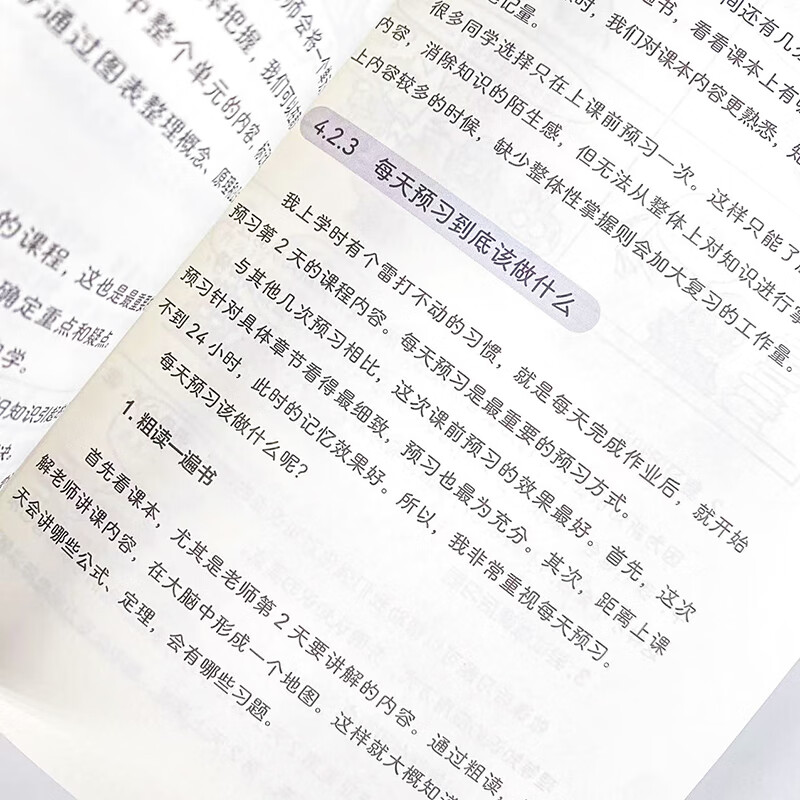 师会将一个
来把握，我们可以
中整个单元的内容，
通过图表整理概念、原理
的课程，这也是最重
确定重点和疑点
学。
旧知识引
间还有几分
书，看看课本上有
时，我们对课本内容更熟悉，知
记量。
很多同学选择只在上课前预习一次。这样只能了
内容，消除知识的陌生感，但无法从整体上对知识进行掌
上内容较多的时候，缺少整体性掌握则会加大复习的工作量。
4.2.3 每天预习到底该做什么
我上学时有个雷打不动的习惯，就是每天完成作业后，就开始
预习第2天的课程内容。每天预习是最重要的预习方式。
与其他几次预习相比，这次课前预习的效果最好。首先，这次
预习针对具体章节看得最细致，预习也最为充分。其次，距离上课
不到24小时，此时的记忆效果好。所以，我非常重视每天预习。
每天预习该做什么呢？
1. 粗读一遍书
首先看课本，尤其是老师第2天要讲解的内容。通过粗读，
解老师讲课内容，在大脑中形成一个地图。这样就大概知道
天会讲哪些公式、定理，会有哪些习题。